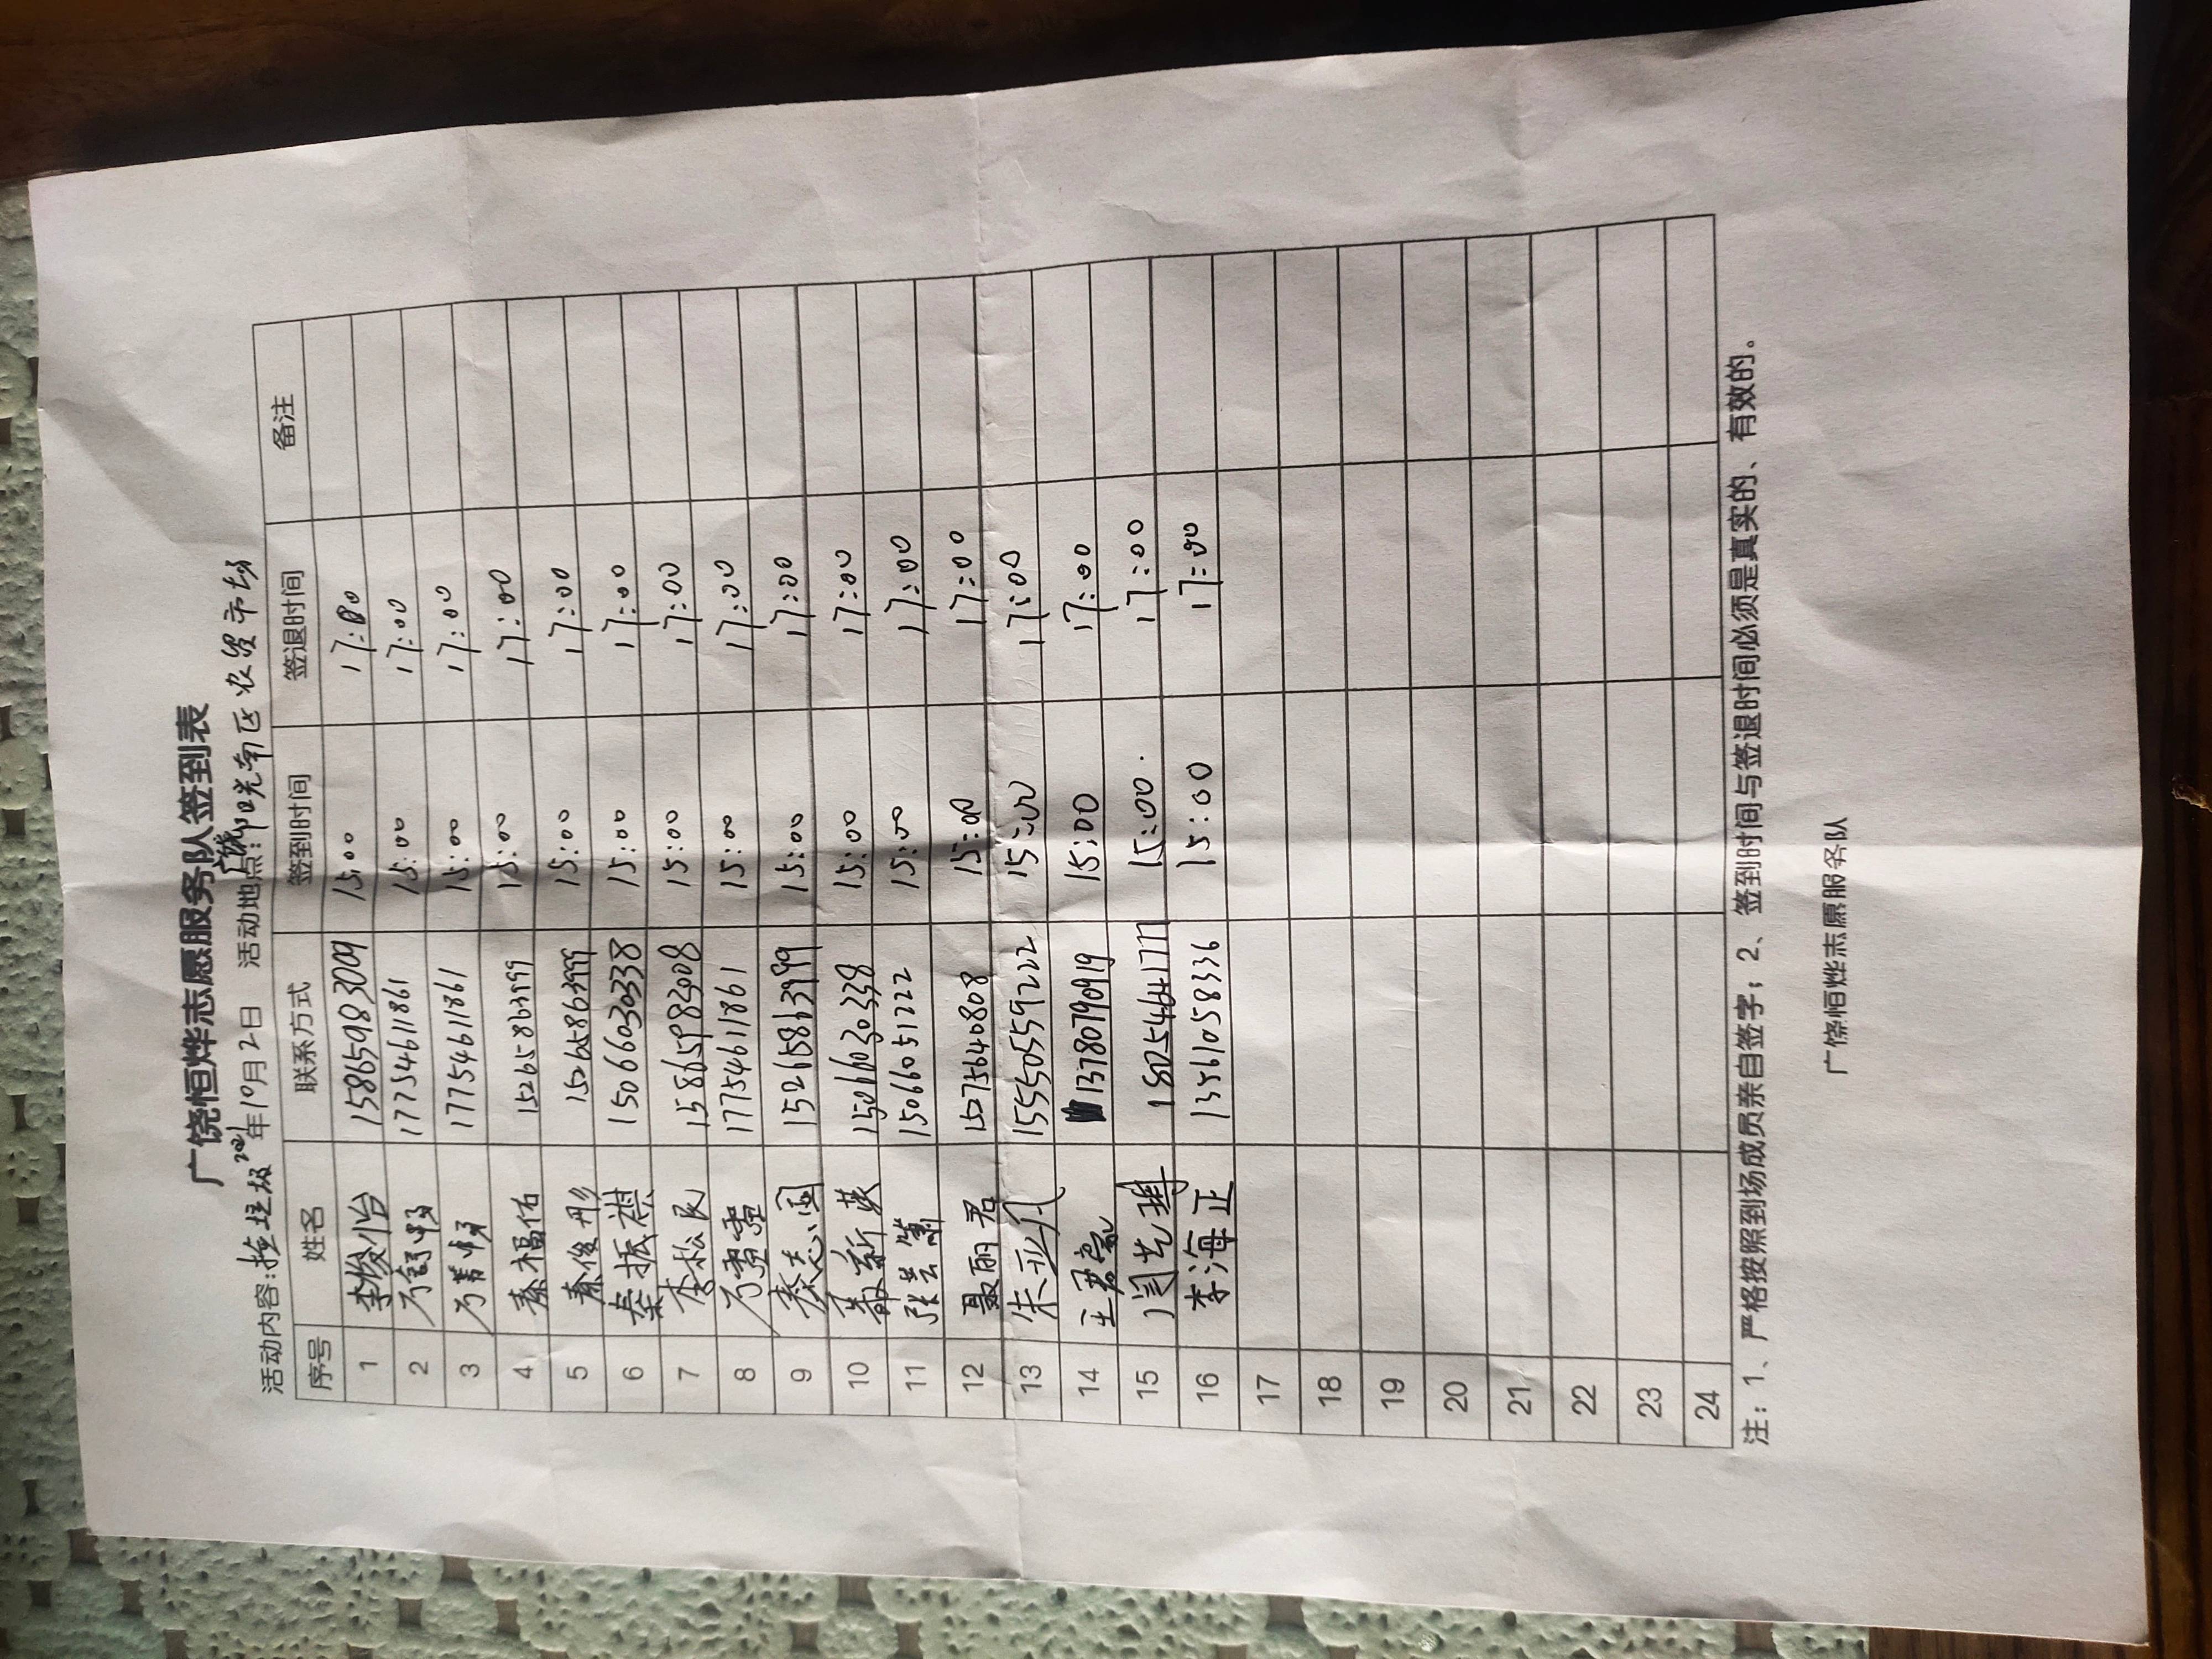 广饶恒烨志愿服务队签到表
活动内容:捡垃圾 2021年10月2日 活动地点:阳光南区农贸市场
序号 姓名 联系方式 签到时间 签退时间 备注
1 李俊怡 15865983009 15:00 17:00
2 17754611861 15:00 17:00
3 17754611861 15:00 17:00
4 秦福佑 15265863999 15:00 17:00
5 秦俊彤 15265863999 15:00 17:00
6 秦振祺 15066030338 15:00 17:00
7 李松民 15865983008 15:00 17:00
8 17754611861 15:00 17:00
9 秦志国 15265863999 15:00 17:00
10 新英 15066030338 15:00 17:00
11 张芸 15066051222 15:00 17:00
12 聂丽君 15275640808 15:00 17:00
13 朱 15550559222 15:00 17:00
14 王君豪 13780790919 15:00 17:00
15 闫艺琪 15:00. 17:00
16 李海正 13561058336 15:00 17:00
17
18
19
20
21
22
23
24
注:1、严格按照到场成员亲自签字;2、签到时间与签退时间必须是真实的、有效的。
广饶恒烨志愿服务队